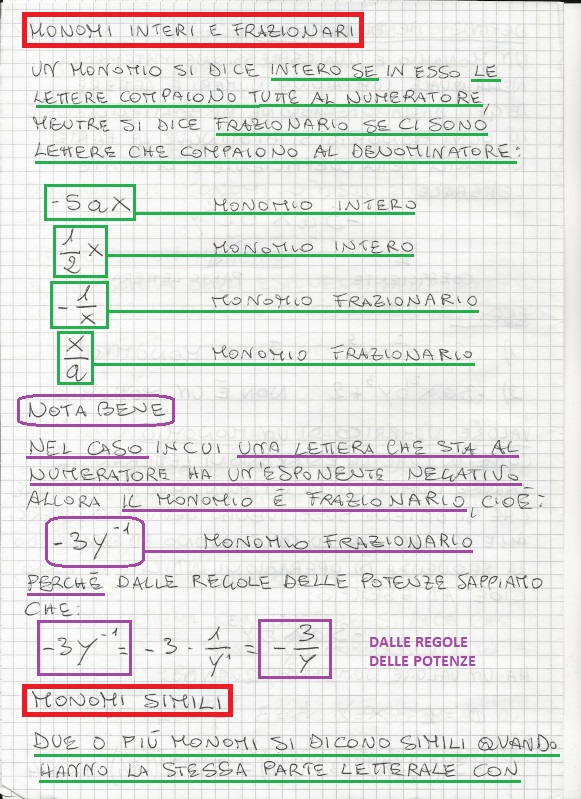 MONOMI INTERI E FRAZIONARI
UN MONOMIO SI DICE INTERO SE IN ESSO LE
LETTERE COMPAIONO TUTTE AL NUMERATORE,
MENTRE SI DICE FRAZIONARIO SE CI SONO
LETTERE CHE COMPAIONO AL DENOMINATORE:
-5ax MONOMIO INTERO
1/2 x MONOMIO INTERO
-1/x MONOMIO FRAZIONARIO
x/a MONOMIO FRAZIONARIO
NOTA BENE
NEL CASO IN CUI UNA LETTERA CHE STA AL
NUMERATORE HA UN'ESPONENTE NEGATIVO
ALLORA IL MONOMIO È FRAZIONARIO, CIOÈ:
-3y⁻¹ MONOMIO FRAZIONARIO
PERCHÉ DALLE REGOLE DELLE POTENZE SAPPIAMO
CHE:
-3y⁻¹ = -3 · 1/y¹ = -3/y DALLE REGOLE
DELLE POTENZE
MONOMI SIMILI
DUE O PIÙ MONOMI SI DICONO SIMILI QUANDO
HANNO LA STESSA PARTE LETTERALE CON